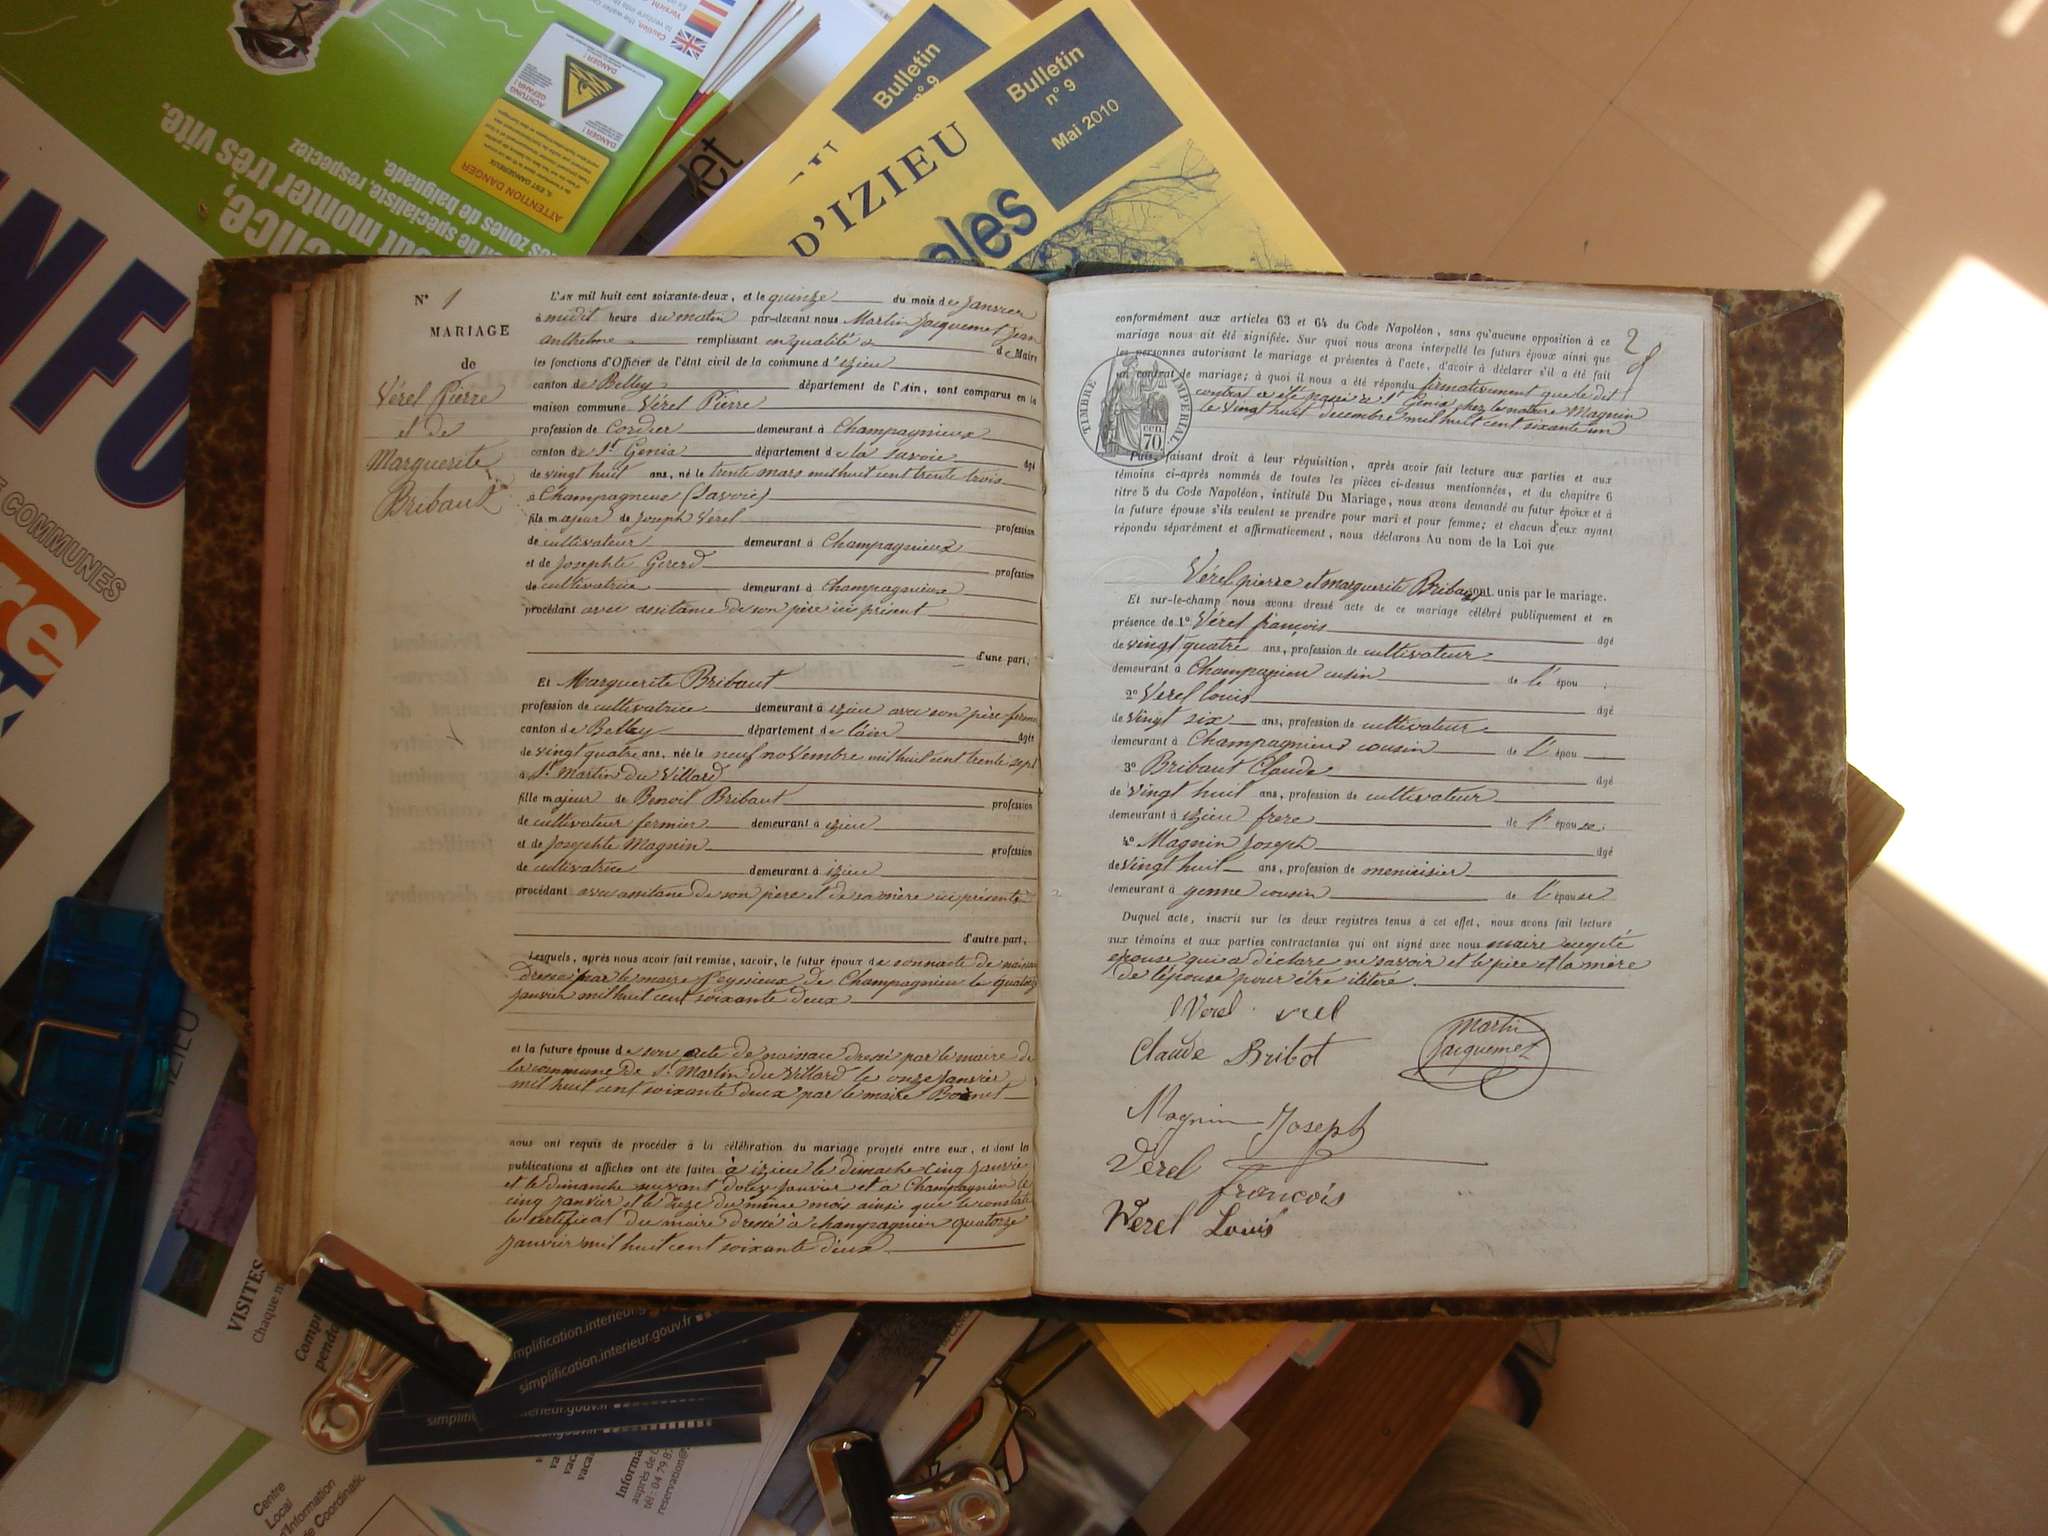 Bulletin
n° 9
Bulletin
n° 9
Mai 2010
D'IZIEU
ales
let
Caution
ATTENTION DANGER
DANGER !
ACHTUNG
GEFAHR !
DANGER !
ence,
out monter très vite.
de spécialiste, respectez
zones de baignade.
NFO
COMMUNES
re
N° 1
MARIAGE
de
Vérel Pierre
et de
Marguerite
Bribaut
L'an mil huit cent soixante-deux, et le quinze du mois de Janvier
à midit heure du matin par-devant nous Martin Jacquemet Jean
anthelme remplissant en qualité de Maire
les fonctions d'Officier de l'état civil de la commune d'izieu
canton de Belley département de l'Ain, sont comparus en la
maison commune Vérel Pierre
profession de Cordier demeurant à Champagnieux
canton de St Genix département de la Savoie âgé
de vingt huit ans, né le trente mars mil huit cent trente trois
à Champagneux (Savoie)
fils majeur de Joseph Vérel profession
de cultivateur demeurant à Champagnieux
et de Josephte Gererd profession
de cultivatrice demeurant à Champagnieux
procédant avec assitance de son père ici présent
d'une part,
Et Marguerite Bribaut
profession de cultivatrice demeurant à izieu avec son père fermier
canton de Belley département de l'ain âgée
de vingt quatre ans, née le neuf novembre mil huit cent trente sept
à St Martin du Villard
fille majeur de Benoit Bribaut profession
de cultivateur fermier demeurant à izieu
et de Josephte Magnin profession
de cultivatrice demeurant à izieu
procédant avec assitane de son père et de sa mère ici présente
d'autre part,
Lesquels, après nous avoir fait remise, savoir, le futur époux de son nacte de naissan
dressé par le maire Feyssieux de Champagnieu le quatorz
Janvier mil huit cent soixante deux
et la future épouse de son acte de naissace dressé par le maire de
la commune de St Martin du Villard le onze Janvier
mil huit cent soixante deux par le maire Boinet
nous ont requis de procéder à la célébration du mariage projeté entre eux, et dont les
publications et affiches ont été faites à izieu le dimache cinq Janvie
et le dimanche suivant douze Janvier et a Champagnieu le
cinq Janvier et le douze du même mois ainsie que le constate
le certificat du maire dressé à champagnieu quatorze
Janvier mil huit cent soixante deux
2
conformément aux articles 63 et 64 du Code Napoléon, sans qu'aucune opposition à ce
mariage nous ait été signifiée. Sur quoi nous avons interpellé les futurs époux ainsi que
les personnes autorisant le mariage et présentes à l'acte, d'avoir à déclarer s'il a été fait
un contrat de mariage; à quoi il nous a été répondu firmativement que le dit
contrat a été passé à St Genix chez le notaire Magnin
le vingt huit decembre mil huit cent soixante un
TIMBRE IMPÉRIAL
70 cen.
Puis, faisant droit à leur réquisition, après avoir fait lecture aux parties et aux
témoins ci-après nommés de toutes les pièces ci-dessus mentionnées, et du chapitre 6
titre 5 du Code Napoléon, intitulé Du Mariage, nous avons demandé au futur époux et à
la future épouse s'ils veulent se prendre pour mari et pour femme; et chacun d'eux ayant
répondu séparément et affirmativement, nous déclarons Au nom de la Loi que
Vérel pierre et marguerite Bribaut sont unis par le mariage.
Et sur-le-champ nous avons dressé acte de ce mariage célébré publiquement et en
présence de 1° Vérel françois âgé
de vingt quatre ans, profession de cultivateur
demeurant à Champagnieu cusin de l'épou
2° Verel louis âgé
de vingt six ans, profession de cultivateur
demeurant à Champagnieux cousin de l'épou
3° Bribaut Claude âgé
de vingt huit ans, profession de cultivateur
demeurant à izieu frere de l'épouse
4° Magnin Joseph âgé
de vingt huit ans, profession de menuisier
demeurant à yenne cousin de l'épouse
Duquel acte, inscrit sur les deux registres tenus à cet effet, nous avons fait lecture
aux témoins et aux parties contractantes qui ont signé avec nous maire excepté
epouse qui a déclare ne savoir et le père et la mère
de l'épouse pour être ilitéré.
Verel
Claude Bribot
Martin
Jacquemet
Magnin Joseph
Verel
françois
Verel Louis
IZIEU
VISITES
Chaque
simplification.interieur.gouv.fr
simplification.interieur.gouv.fr
Informa
auprès de
tél : 04 79 8
reservation@
Centre
Local
d'Information
de Coordination